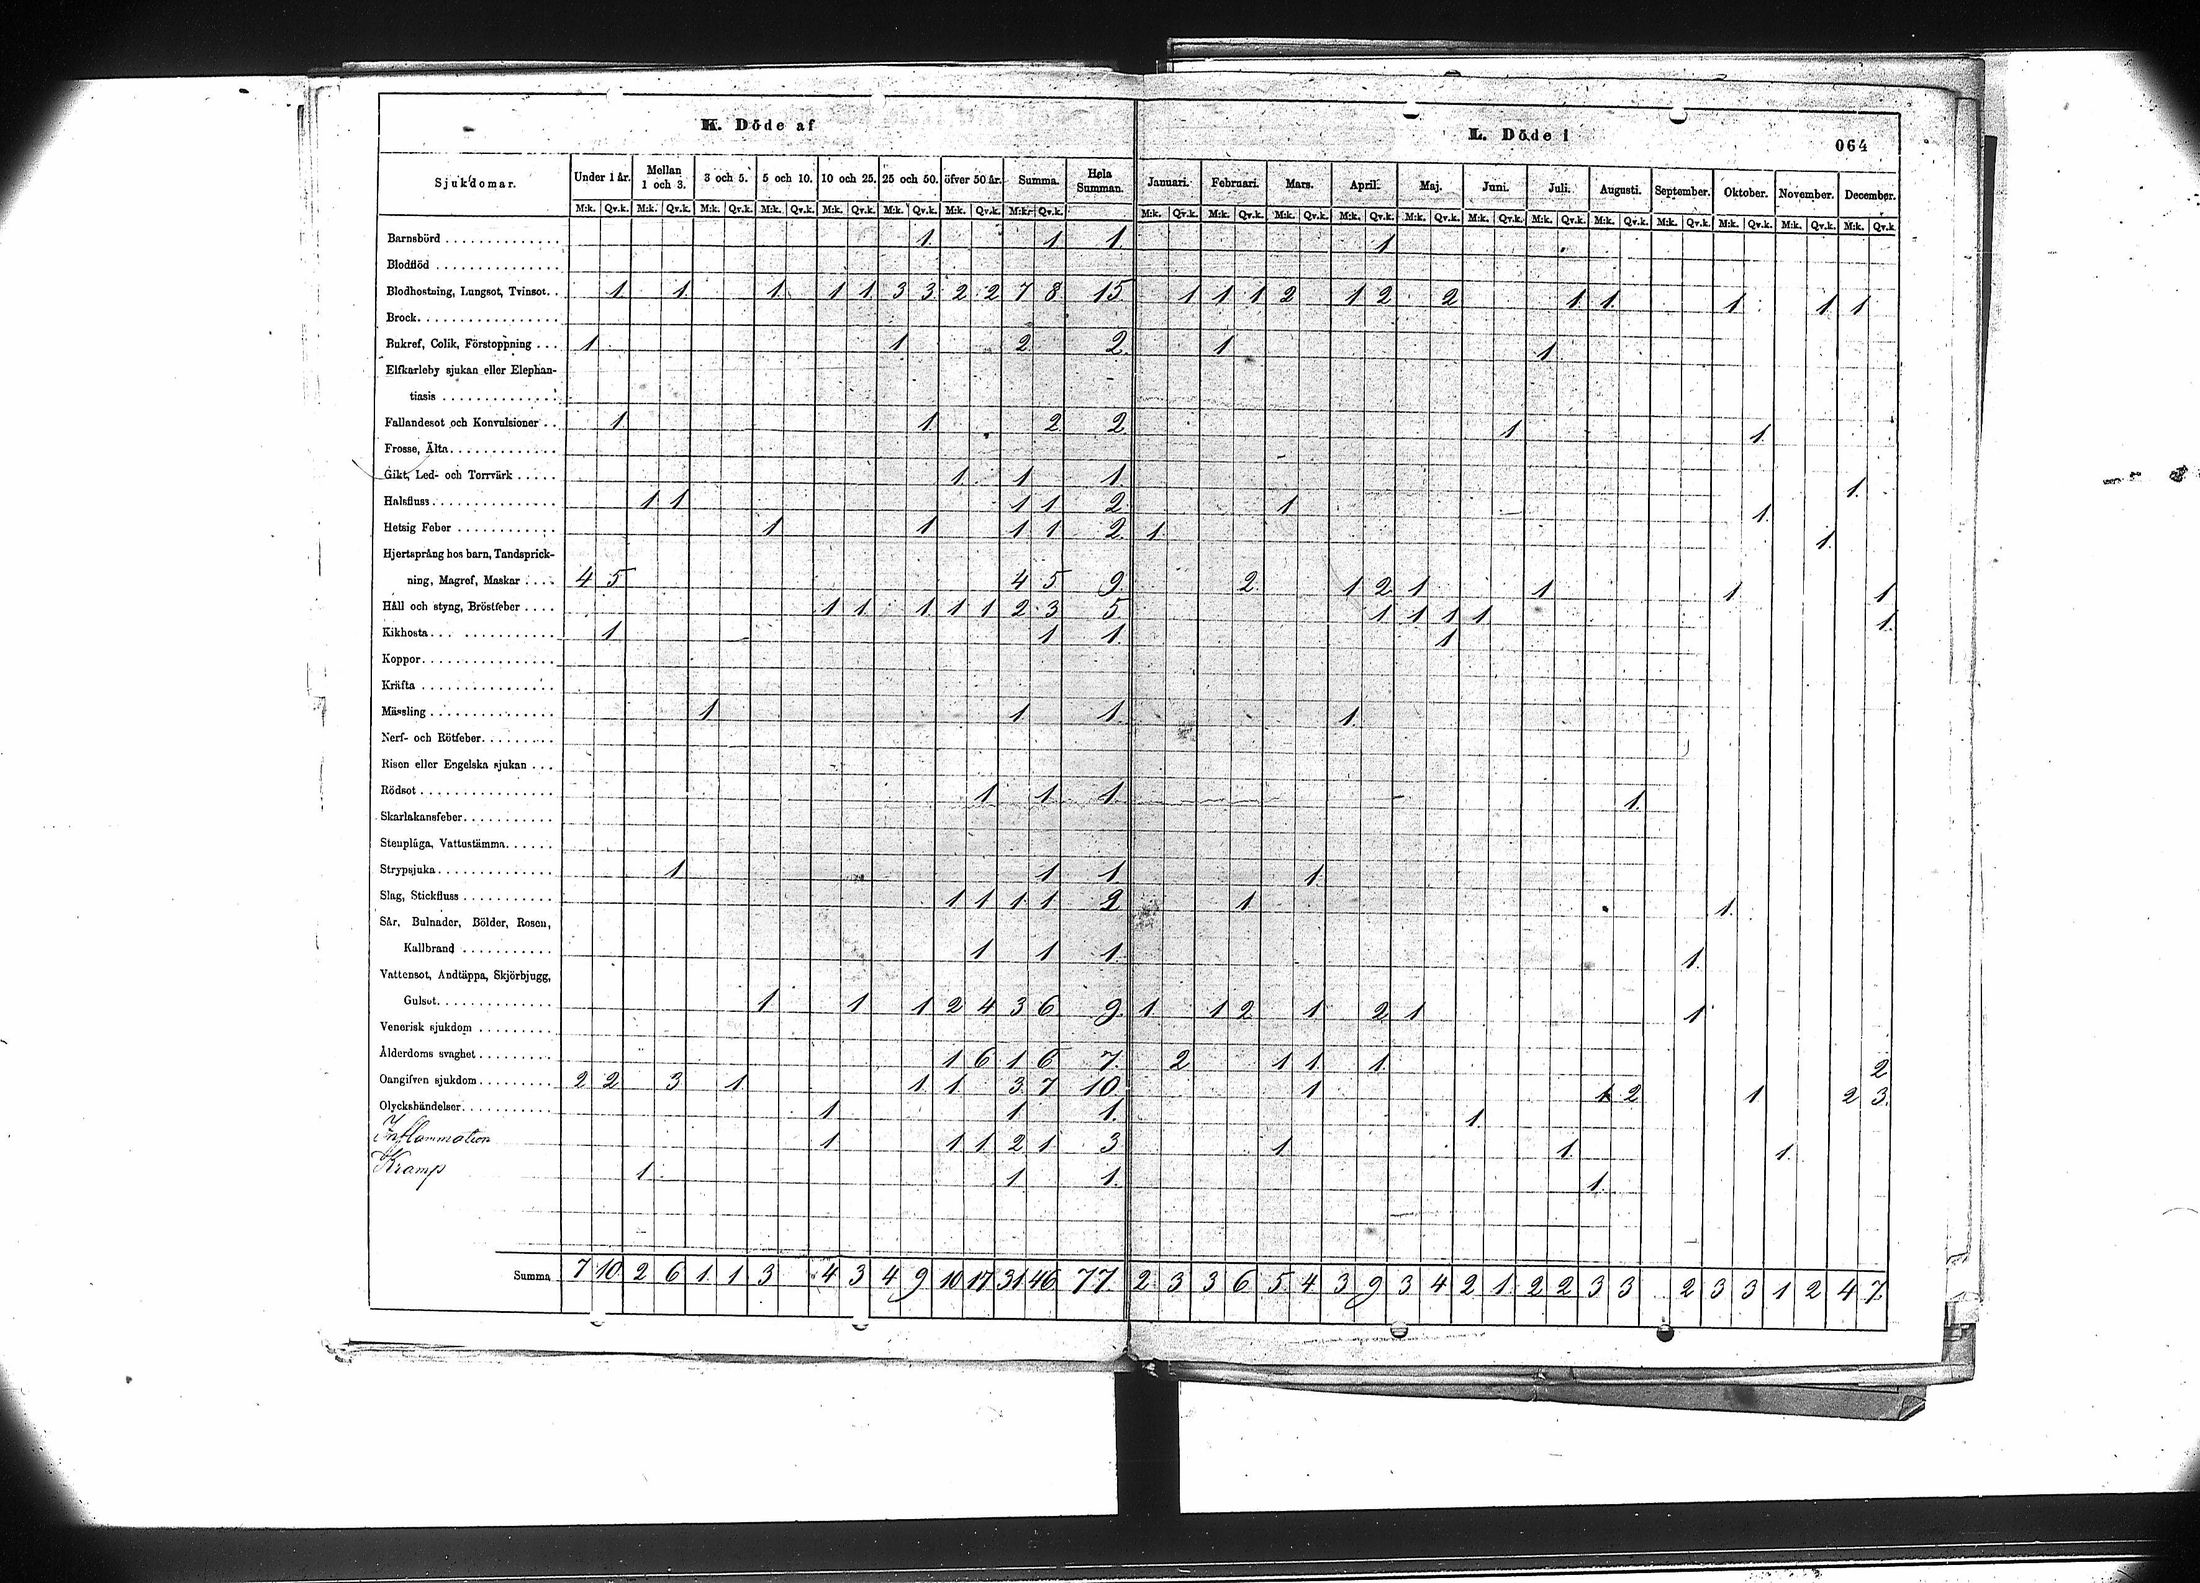 K. Döde af
L. Döde i
064
Sjukdomar. Under 1 år. Mellan 1 och 3. 3 och 5. 5 och 10. 10 och 25. 25 och 50. öfver 50 år. Summa. Hela Summan. Januari. Februari. Mars. April. Maj. Juni. Juli. Augusti. September. Oktober. November. December.
M:k. Qv.k. M:k. Qv.k. M:k. Qv.k. M:k. Qv.k. M:k. Qv.k. M:k. Qv.k. M:k. Qv.k. M:k. Qv.k. M:k. Qv.k. M:k. Qv.k. M:k. Qv.k. M:k. Qv.k. M:k. Qv.k. M:k. Qv.k. M:k. Qv.k. M:k. Qv.k. M:k. Qv.k. M:k. Qv.k. M:k. Qv.k. M:k. Qv.k.
Barnsbörd 1. 1. 1. 1
Blodflöd
Blodhostning, Lungsot, Tvinsot. 1. 1. 1. 1 1 3 3 2 2 7 8 15. 1 1 1 2 1 2 2 1 1. 1 1 1
Brock.
Bukref, Colik, Förstoppning 1 1 2 2. 1 1
Elfkarleby sjukan eller Elephan-
tiasis
Fallandesot och Konvulsioner 1 1. 2. 2. 1 1.
Frosse, Älta.
Gikt, Led- och Torrvärk 1. 1 1. 1.
Halsfluss. 1. 1 1 1 2. 1 1.
Hetsig Feber 1 1 1 1 2. 1. 1.
Hjertsprång hos barn, Tandsprick-
ning, Magref, Maskar 4 5 4 5 9. 2. 1 2 1 1 1 1
Håll och styng, Bröstfeber 1 1. 1. 1 1 2. 3 5 1 1 1 1 1.
Kikhosta. 1 1 1. 1
Koppor.
Kräfta
Mässling 1 1 1. 1.
Nerf- och Rötfeber.
Risen eller Engelska sjukan
Rödsot 1 1 1. 1.
Skarlakansfeber.
Stenplåga, Vattustämma.
Strypsjuka. 1 1 1 1.
Slag, Stickfluss 1 1 1. 1 2 1 1.
Sår, Bulnader, Bölder, Rosen,
Kallbrand 1 1 1. 1.
Vattensot, Andtäppa, Skjörbjugg,
Gulsot. 1 1 1 2 4 3 6 9. 1 1 2 1 2 1 1
Venerisk sjukdom
Ålderdoms svaghet 1 6 1 6 7. 2 1 1 1. 2
Oangifven sjukdom 2 2 3 1. 1. 1. 3. 7 10. 1 1 2 1 2 3.
Olyckshändelser. 1 1 1. 1.
Inflammation 1 1 1 2 1 3 1 1 1.
Kramp 1 1 1. 1.
Summa 7 10 2 6 1. 1 3 4 3 4 9 10 17 31 46 77. 2 3 3 6 5 4 3 9 3 4 2 1 2 2 3 3 2 3 3 1 2 4 7.